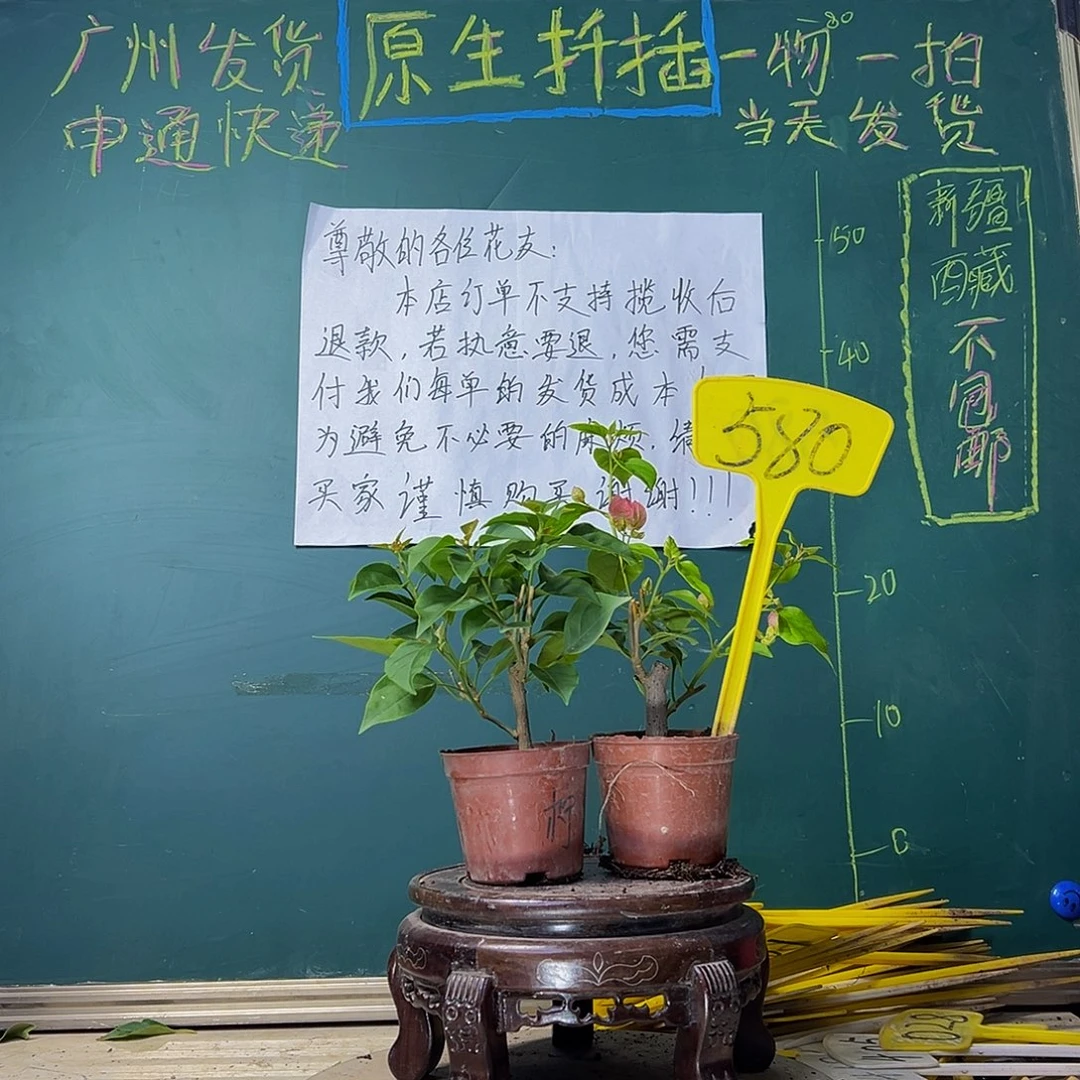 广州发货
申通快递
原生扦插
一物一拍
80
当天发货
尊敬的各位花友:
本店订单不支持揽收后
退款,若执意要退,您需支
付我们每单的发货成本
为避免不必要的麻烦,请
买家谨慎购买 谢谢!!!
580
50
40
20
10
0
新疆
西藏
不包邮
扦